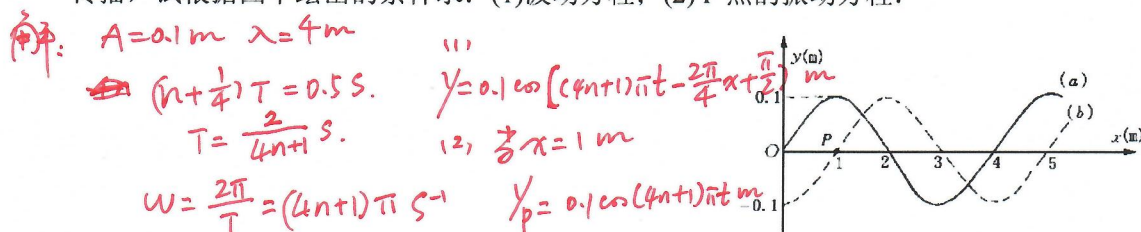 传播,试根据图中绘出的条件求:(1)波动方程;(2)P点的振动方程.
解: A=0.1m λ=4m
(n+1/4)T=0.5 S.
T=2/(4n+1) S.
ω=2π/T=(4n+1)π S⁻¹
(1)
y=0.1cos[(4n+1)πt-2π/4 x+π/2] m
(2) 当x=1m
yₚ=0.1cos(4n+1)πt m
y(m)
(a)
(b)
0.1
P
x(m)
O 1 2 3 4 5
-0.1